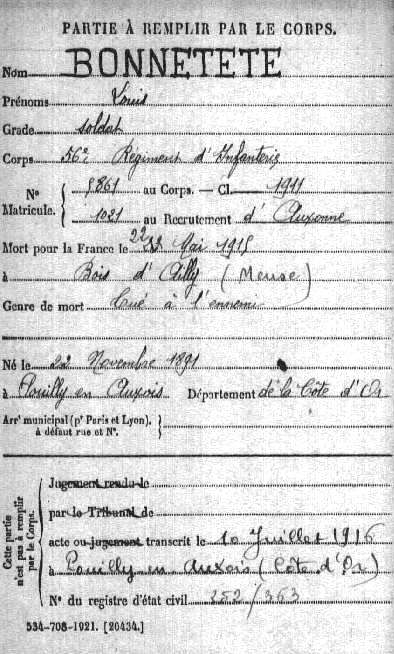 PARTIE À REMPLIR PAR LE CORPS.
Nom BONNETETE
Prénoms Louis
Grade soldat
Corps 56e Régiment d'Infanterie
No Matricule. { 5861 au Corps. — Cl. 1911
1021 au Recrutement d' Auxonne
Mort pour la France le 22 Mai 1915
à Bois d'Ailly (Meuse)
Genre de mort Tué à l'ennemi
Né le 22 Novembre 1891
à Pouilly en Auxois Département de la Côte d'Or
Arrt municipal (pr Paris et Lyon), à défaut rue et No. }
Cette partie n'est pas à remplir par le Corps.
Jugement rendu le
par le Tribunal de
acte ou jugement transcrit le 10 Juillet 1916
à Pouilly en Auxois (Côte d'Or)
No du registre d'état civil 252/363
534-708-1921. [26434.]